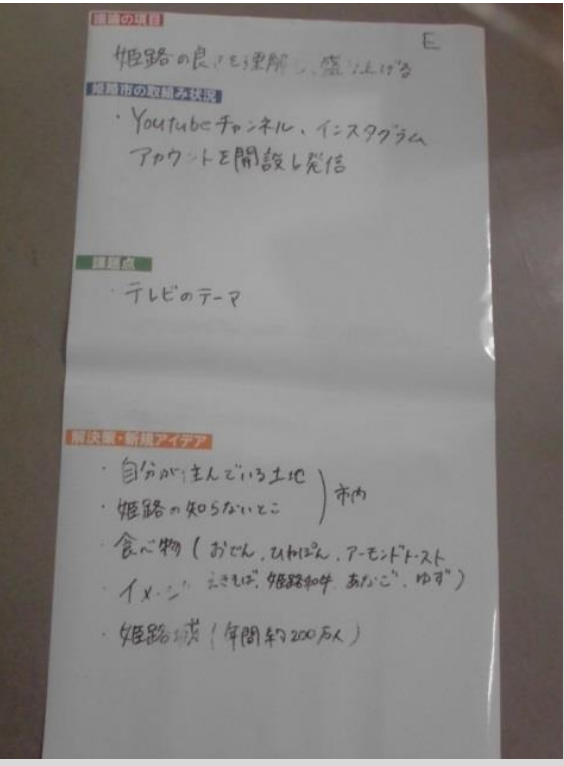 議論の項目
E
姫路の良さを理解し、盛り上げる
姫路市の取組み状況
・Youtubeチャンネル、インスタグラム
アカウントを開設し発信
課題点
・テレビのテーマ
解決策・新規アイデア
・自分が住んでいる土地
・姫路の知らないとこ
市内
・食べ物(おでん、ひねぽん、アーモンドトースト
えきそば、姫路和牛、あなご、ゆず)
・イメージ
・姫路城(年間約200万人)